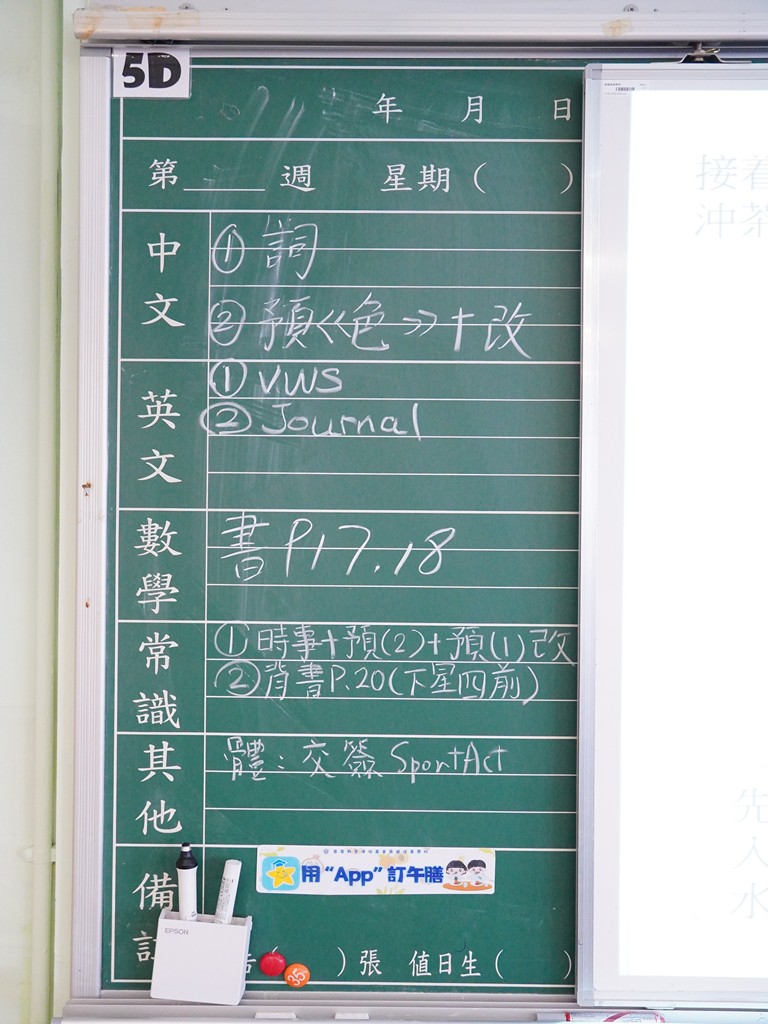 5D
年 月 日
第____週 星期（ ）
中文
① 詞
② 預《色》+改
英文
① VWS
② Journal
數學
書P17.18
常識
① 時事+預(2)+預(1)改
② 背書P.20(下星四前)
其他
體：交簽 SportAct
用“App”訂午膳
備
EPSON
）張 值日生（ ）
35
接着
沖茶
先
入
水